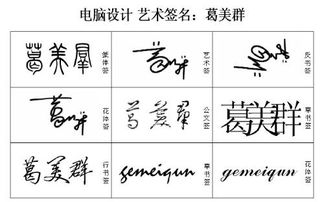 电脑设计 艺术签名：葛美群
葛美群 篆体签
葛美群 艺术签
葛美群 反书签
葛美群 花体签
葛美群 公文签
葛美群 草书签
葛美群 行书签
gemeiqun 草书签
gemeiqun 花体签